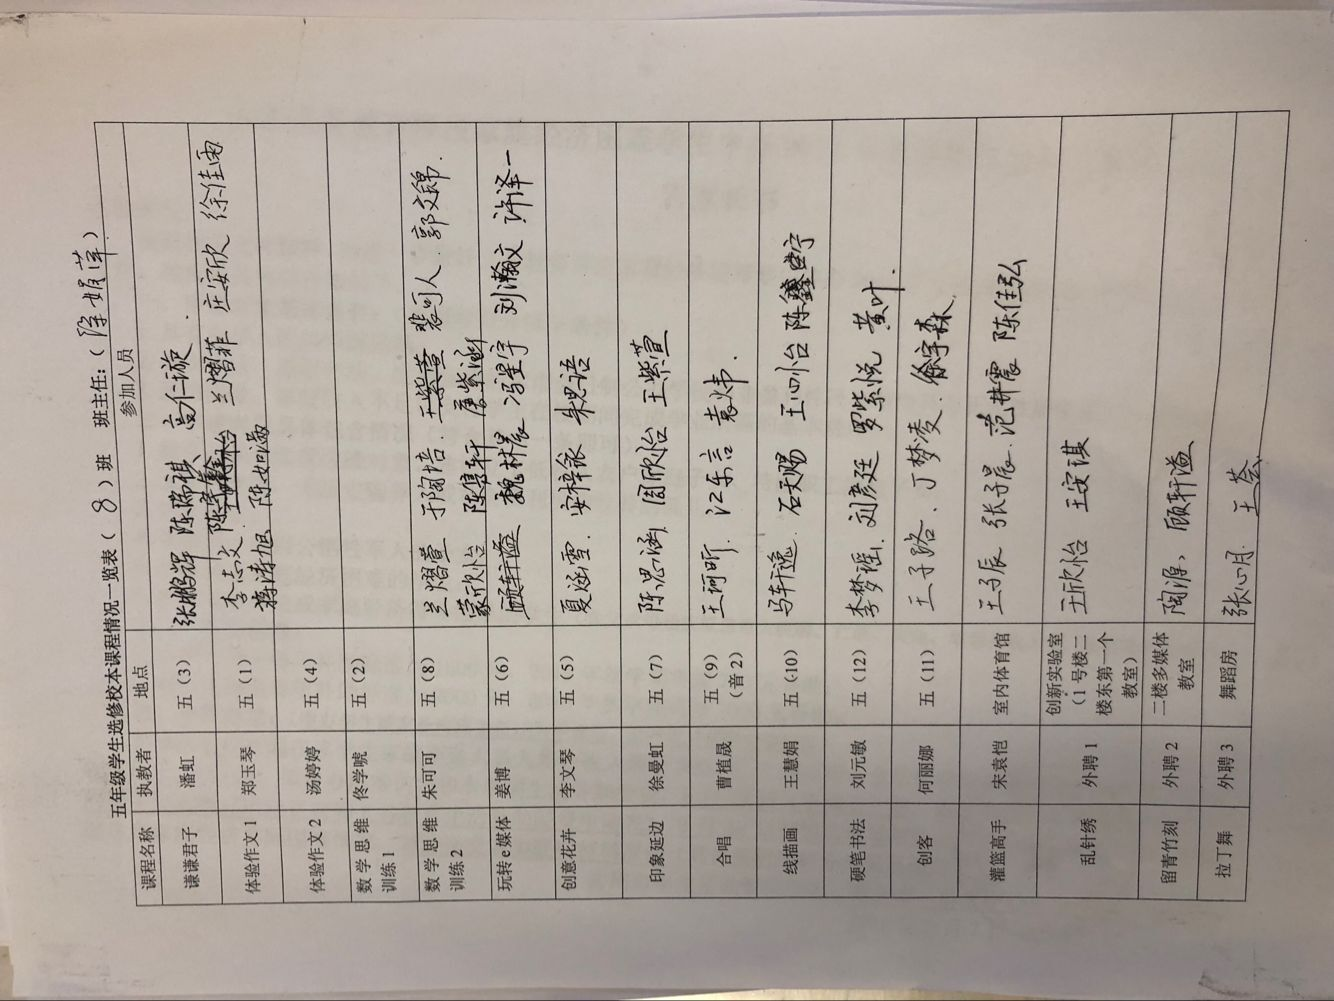 五年级学生选修校本课程情况一览表（ 8 ）班 班主任：（陈娟萍）
课程名称 执教者 地点 参加人员
谦谦君子 潘虹 五（3） 张鹏辉 陈瑞祺 高仁旋.
体验作文1 郑玉琴 五（1） 李志文 兰熠菲 庄安欣 徐佳雨
体验作文2 汤婷婷 五（4） 蒋涛旭 陈如涵
数学思维训练1 佟学唬 五（2）
数学思维训练2 朱可可 五（8） 兰熠萱 于陶培 王紫萱 裴可人 郭文锦.
蒙欣怡 陈隽轩 唐紫涵
玩转e媒体 姜博 五（6） 顾轩溢 魏林晨 冯星宇 刘瀚文 许泽一
创意花卉 李文琴 五（5） 夏涵雪. 安梓涵 朱思语
印象延边 徐曼虹 五（7） 陈思涵 周欣怡 王紫萱
合唱 曹植晟 五（9）（音2） 王珂昕. 江乐言 袁炜.
线描画 王慧娟 五（10） 马轩逸. 石天赐 王心怡 陈鑫宇
硬笔书法 刘元敏 五（12） 李梦谣. 刘彦廷 罗紫悦 黄叶.
创客 何丽娜 五（11） 王子路. 丁梦凌. 徐宇森.
灌篮高手 宋袁恺 室内体育馆 王子辰 张子晨. 范井震 陈佳弘
乱针绣 外聘1 创新实验室（1号楼二楼东第一个教室） 王欣怡 王安琪
留青竹刻 外聘2 二楼多媒体教室 陶源、顾轩溢
拉丁舞 外聘3 舞蹈房 张心月. 王荟、